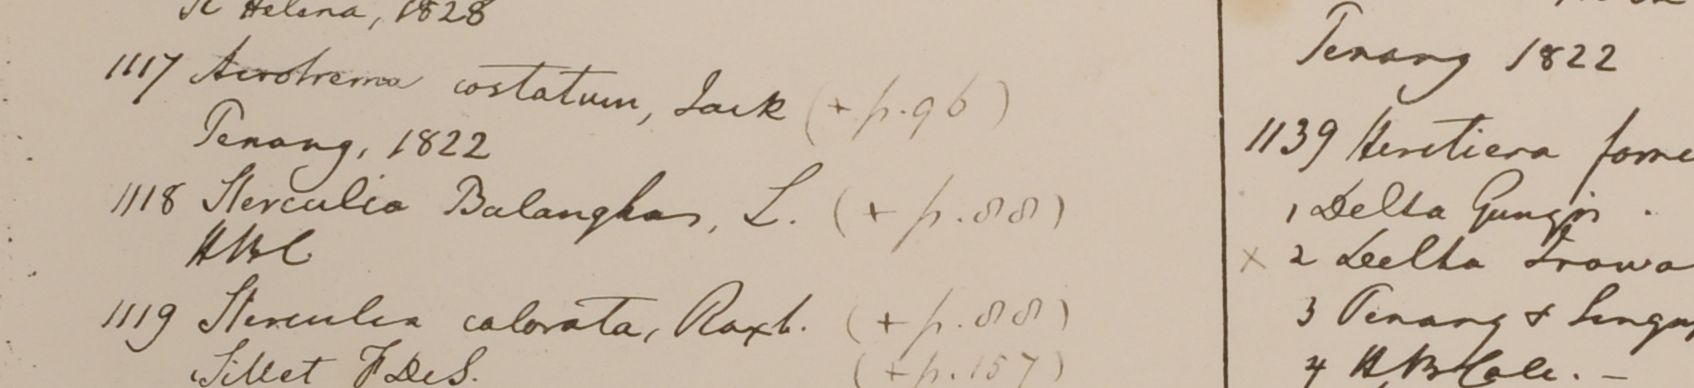 St Helena, 1828
1117 Acrotrema costatum, Jack (+ p. 96)
Penang, 1822
1118 Sterculia Balanghas, L. (+ p. 88)
HBC
1119 Sterculia colorata, Roxb. (+ p. 88)
Sillet F DeS. (+ p. 157)
Penang 1822
1139 Heretiera fome
1 Delta Gangis.
x 2 Delta Irawa
3 Penang & Singap
4 HB Calc. –